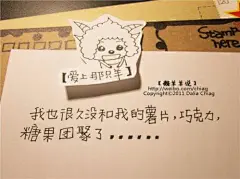 Stamp
here
【爱上那只羊】
【懒羊羊说】
http://weibo.com/chiag
Copyright©2011 Daba Chiag
我也很久没和我的薯片,巧克力,
糖果团聚了......